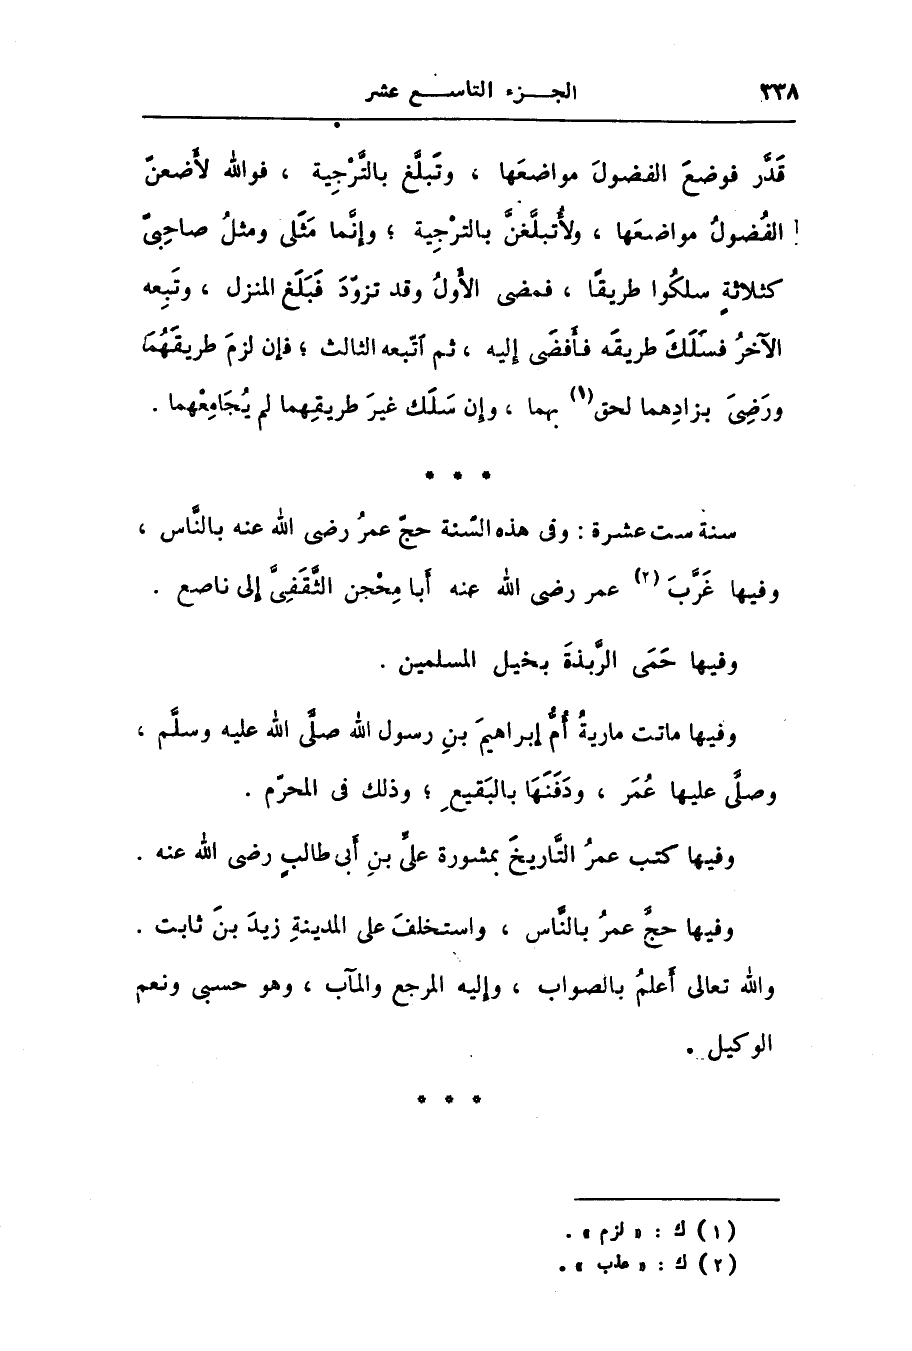 ٣٣٨ الجزء التاسع عشر
قَدَّر فوضعَ الفضولَ مواضعَها ، وتَبلَّغ بالتَّرْجِية ، فوالله لأَضعنّ
الفُضولُ مواضعَها ، ولأُتبلَّغنَّ بالترْجِية ؛ وإنَّما مَثَلى ومثلُ صاحِبىّ
كثلاثةٍ سلكُوا طريقًا ، فمضى الأَولُ وقد تزوّدَ فَبَلَغ المنزل ، وتَبِعه
الآخرُ فسَلَكَ طريقَه فأَفضَى إليه ، ثم اَتّبعه الثالث ؛ فإن لزمَ طريقَهُمَا
ورَضِىَ بزادِهما لحق(١) بهما ، وإن سَلَك غيرَ طريقِهما لم يُجَامِعْهما .
* * *
سنة ست عشرة : وفى هذه السّنة حجّ عمرُ رضى الله عنه بالنَّاس ،
وفيها غَرَّبَ (٢) عمر رضى الله عنه أَبا مِحْجن الثَّقَفِىَّ إلى ناصع .
وفيها حَمَى الرَّبذةَ بخيل المسلمين .
وفيها ماتت ماريةُ أُمُّ إبراهيمَ بنِ رسول الله صلَّى الله عليه وسلَّم ،
وصلَّى عليها عُمَر ، ودَفَنَهَا بالبَقيعِ ؛ وذلك فى المحرّم .
وفيها كتب عمرُ التَّاريخَ بمشورة علىِّ بنِ أَبى طالبٍ رضى الله عنه .
وفيها حجَّ عمرُ بالنَّاس ، واستخلفَ على المدينةِ زيدَ بنَ ثابت .
والله تعالى أَعلمُ بالصواب ، وإليه المرجع والمآب ، وهو حسبى ونعم
الوكيل .
* * *
(١) ك : « لزم » .
(٢) ك : « عذب » .